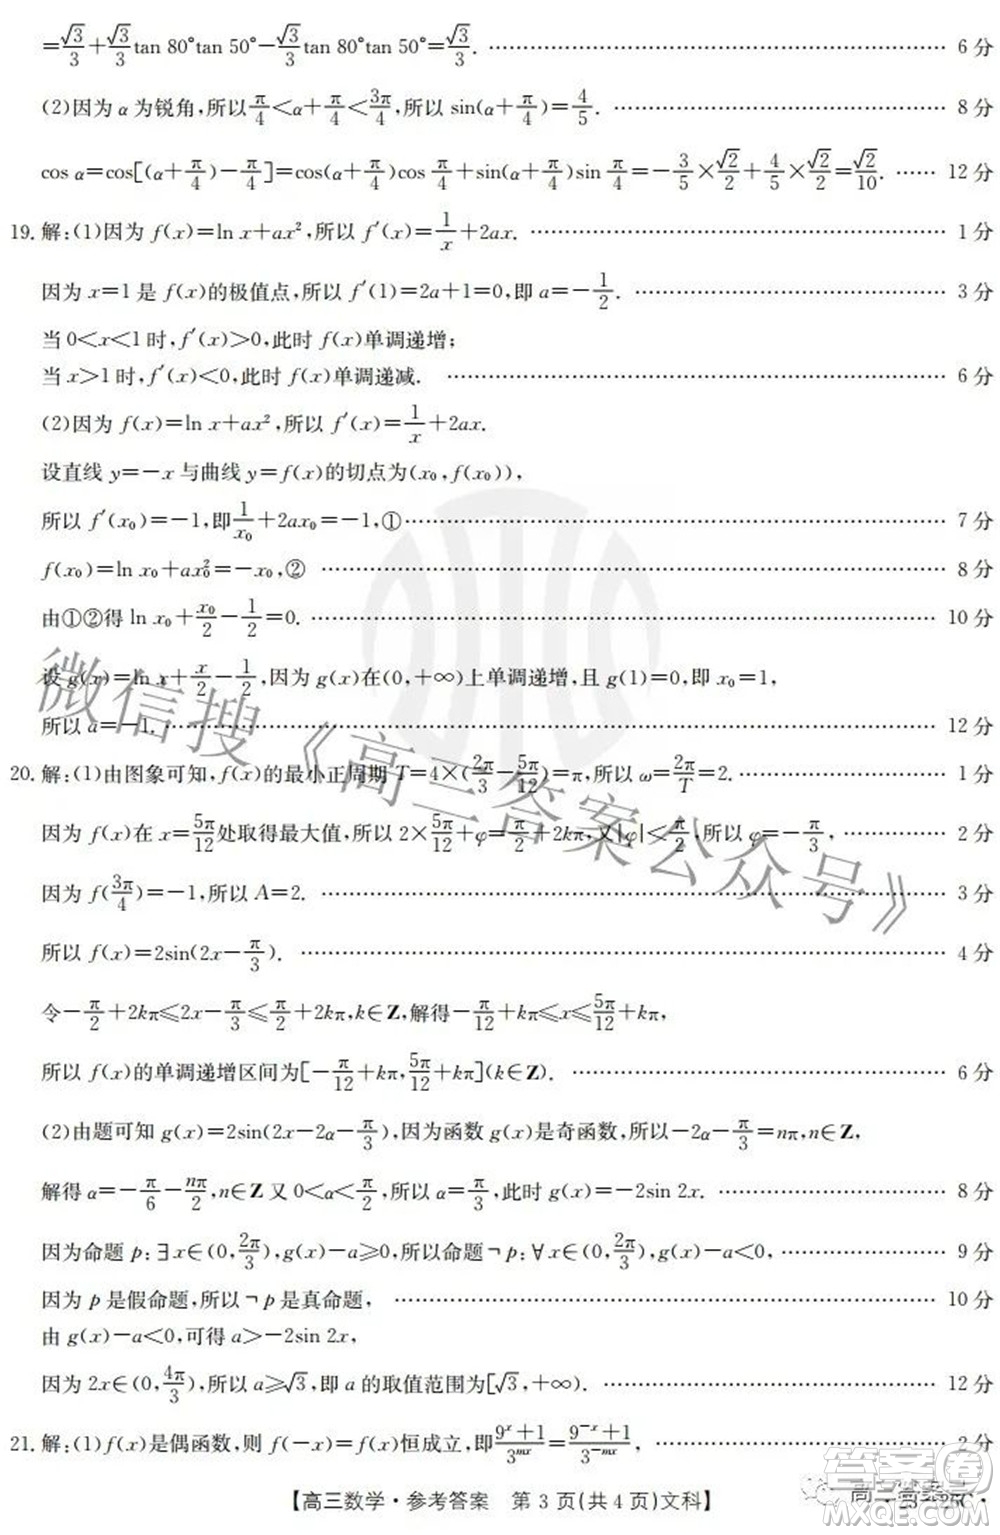 =√3/3+√3/3tan 80°tan 50°-√3/3tan 80°tan 50°=√3/3. …… 6 分
(2)因为 α 为锐角,所以π/4<α+π/4<3π/4,所以 sin(α+π/4)=4/5. …… 8 分
cos α=cos[(α+π/4)-π/4]=cos(α+π/4)cos π/4+sin(α+π/4)sin π/4=-3/5×√2/2+4/5×√2/2=√2/10. …… 12 分
19. 解:(1)因为 f(x)=ln x+ax²,所以 f′(x)=1/x+2ax. …… 1 分
因为 x=1 是 f(x)的极值点,所以 f′(1)=2a+1=0,即 a=-1/2. …… 3 分
当 0<x<1 时,f′(x)>0,此时 f(x)单调递增;
当 x>1 时,f′(x)<0,此时 f(x)单调递减. …… 6 分
(2)因为 f(x)=ln x+ax²,所以 f′(x)=1/x+2ax.
设直线 y=-x 与曲线 y=f(x)的切点为(x₀,f(x₀)),
所以 f′(x₀)=-1,即1/x₀+2ax₀=-1,① …… 7 分
f(x₀)=ln x₀+ax₀²=-x₀,② …… 8 分
由①②得 ln x₀+x₀/2-1/2=0. …… 10 分
设 g(x)=ln x+x/2-1/2,因为 g(x)在(0,+∞)上单调递增,且 g(1)=0,即 x₀=1,
所以 a=-1. …… 12 分
20. 解:(1)由图象可知,f(x)的最小正周期 T=4×(2π/3-5π/12)=π,所以 ω=2π/T=2. …… 1 分
因为 f(x)在 x=5π/12处取得最大值,所以 2×5π/12+φ=π/2+2kπ,又|φ|<π/2,所以 φ=-π/3, …… 2 分
因为 f(3π/4)=-1,所以 A=2. …… 3 分
所以 f(x)=2sin(2x-π/3). …… 4 分
令-π/2+2kπ≤2x-π/3≤π/2+2kπ,k∈Z,解得-π/12+kπ≤x≤5π/12+kπ,
所以 f(x)的单调递增区间为[-π/12+kπ,5π/12+kπ](k∈Z). …… 6 分
(2)由题可知 g(x)=2sin(2x-2α-π/3),因为函数 g(x)是奇函数,所以-2α-π/3=nπ,n∈Z,
解得 α=-π/6-nπ/2,n∈Z 又 0<α<π/2,所以 α=π/3,此时 g(x)=-2sin 2x. …… 8 分
因为命题 p:∃x∈(0,2π/3),g(x)-a≥0,所以命题¬p:∀x∈(0,2π/3),g(x)-a<0, …… 9 分
因为 p 是假命题,所以¬p 是真命题, …… 10 分
由 g(x)-a<0,可得 a>-2sin 2x,
因为 2x∈(0,4π/3),所以 a≥√3,即 a 的取值范围为[√3,+∞). …… 12 分
21. 解:(1)f(x)是偶函数,则 f(-x)=f(x)恒成立,即(9ˣ+1)/3ᵐˣ=(9⁻ˣ+1)/3⁻ᵐˣ, …… 2 分
【高三数学·参考答案 第 3 页(共 4 页)文科】
微信搜《高三答案公众号》